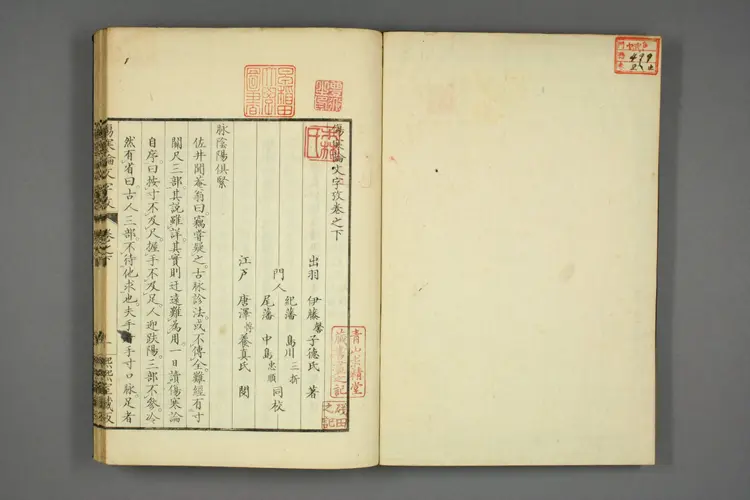 傷寒論文字攷卷之下
出羽 伊藤馨子德氏 著
門人
紀藩 島川三折
尾藩 中島忠順 同校
江戸 唐澤 養真氏 閲
脉陰陽俱緊
佐井聞菴翁曰竊嘗疑之古脉診法或不傳全難經有寸
關尺三部其說雖詳其實則迂遠難為用一日讀傷寒論
自序曰按寸不及尺握手不及足人迎趺陽三部不參冷
然有省曰古人三部不待他求也夫手者手寸口脉足者
傷寒論文字攷 卷之下 一
早稲田大學圖書
青山求精堂藏書畫之記